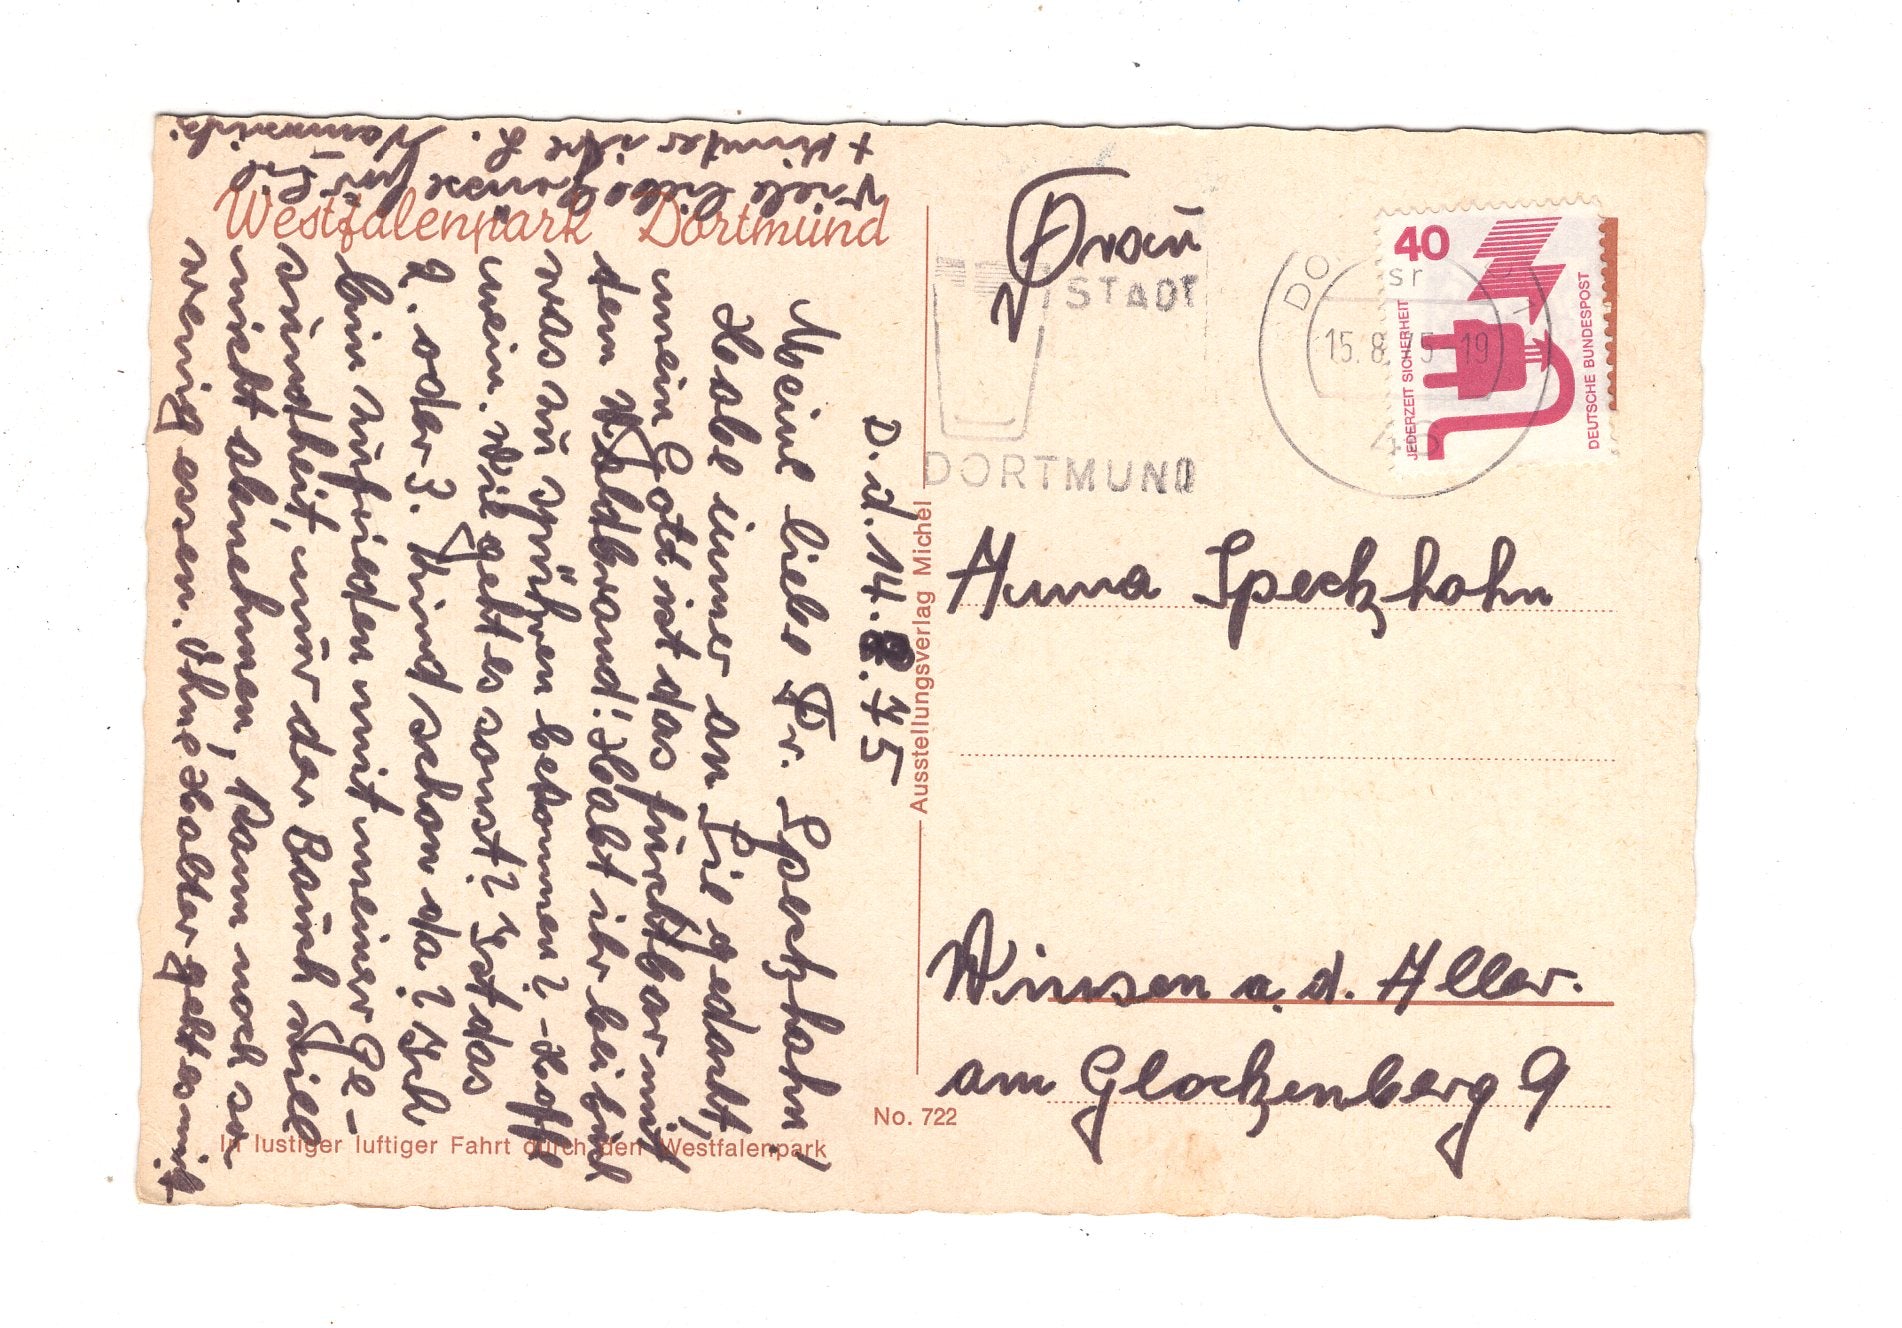 Westfalenpark Dortmund
D. d. 14.8.75
Meine liebe Fr. Speckhahn,
Habe immer an Sie gedacht,
mein Gott ist das furchtbar mit
dem Waldbrand! Habt ihr bei euch
was zu spühren bekommen? - Hoff
nein. Wie geht es sonst? Ist das
2. oder 3. Kind schon da? Ich
bin zufrieden mit meiner Ge-
sundheit, nur der Bauch will
nicht abnehmen, kann noch so
wenig essen. Ohne Halter geht es nicht
Viele liebe Grüsse für Sie
+ Kinder ihre L.
In lustiger luftiger Fahrt durch den Westfalenpark
Ausstellungsverlag Michel
No. 722
STADT
DORTMUND
DO
sr
15.8. 5-19
46
40
JEDERZEIT SICHERHEIT
DEUTSCHE BUNDESPOST
Frau
Anna Speckhahn
Winsen a. d. Aller.
am Glockenberg 9